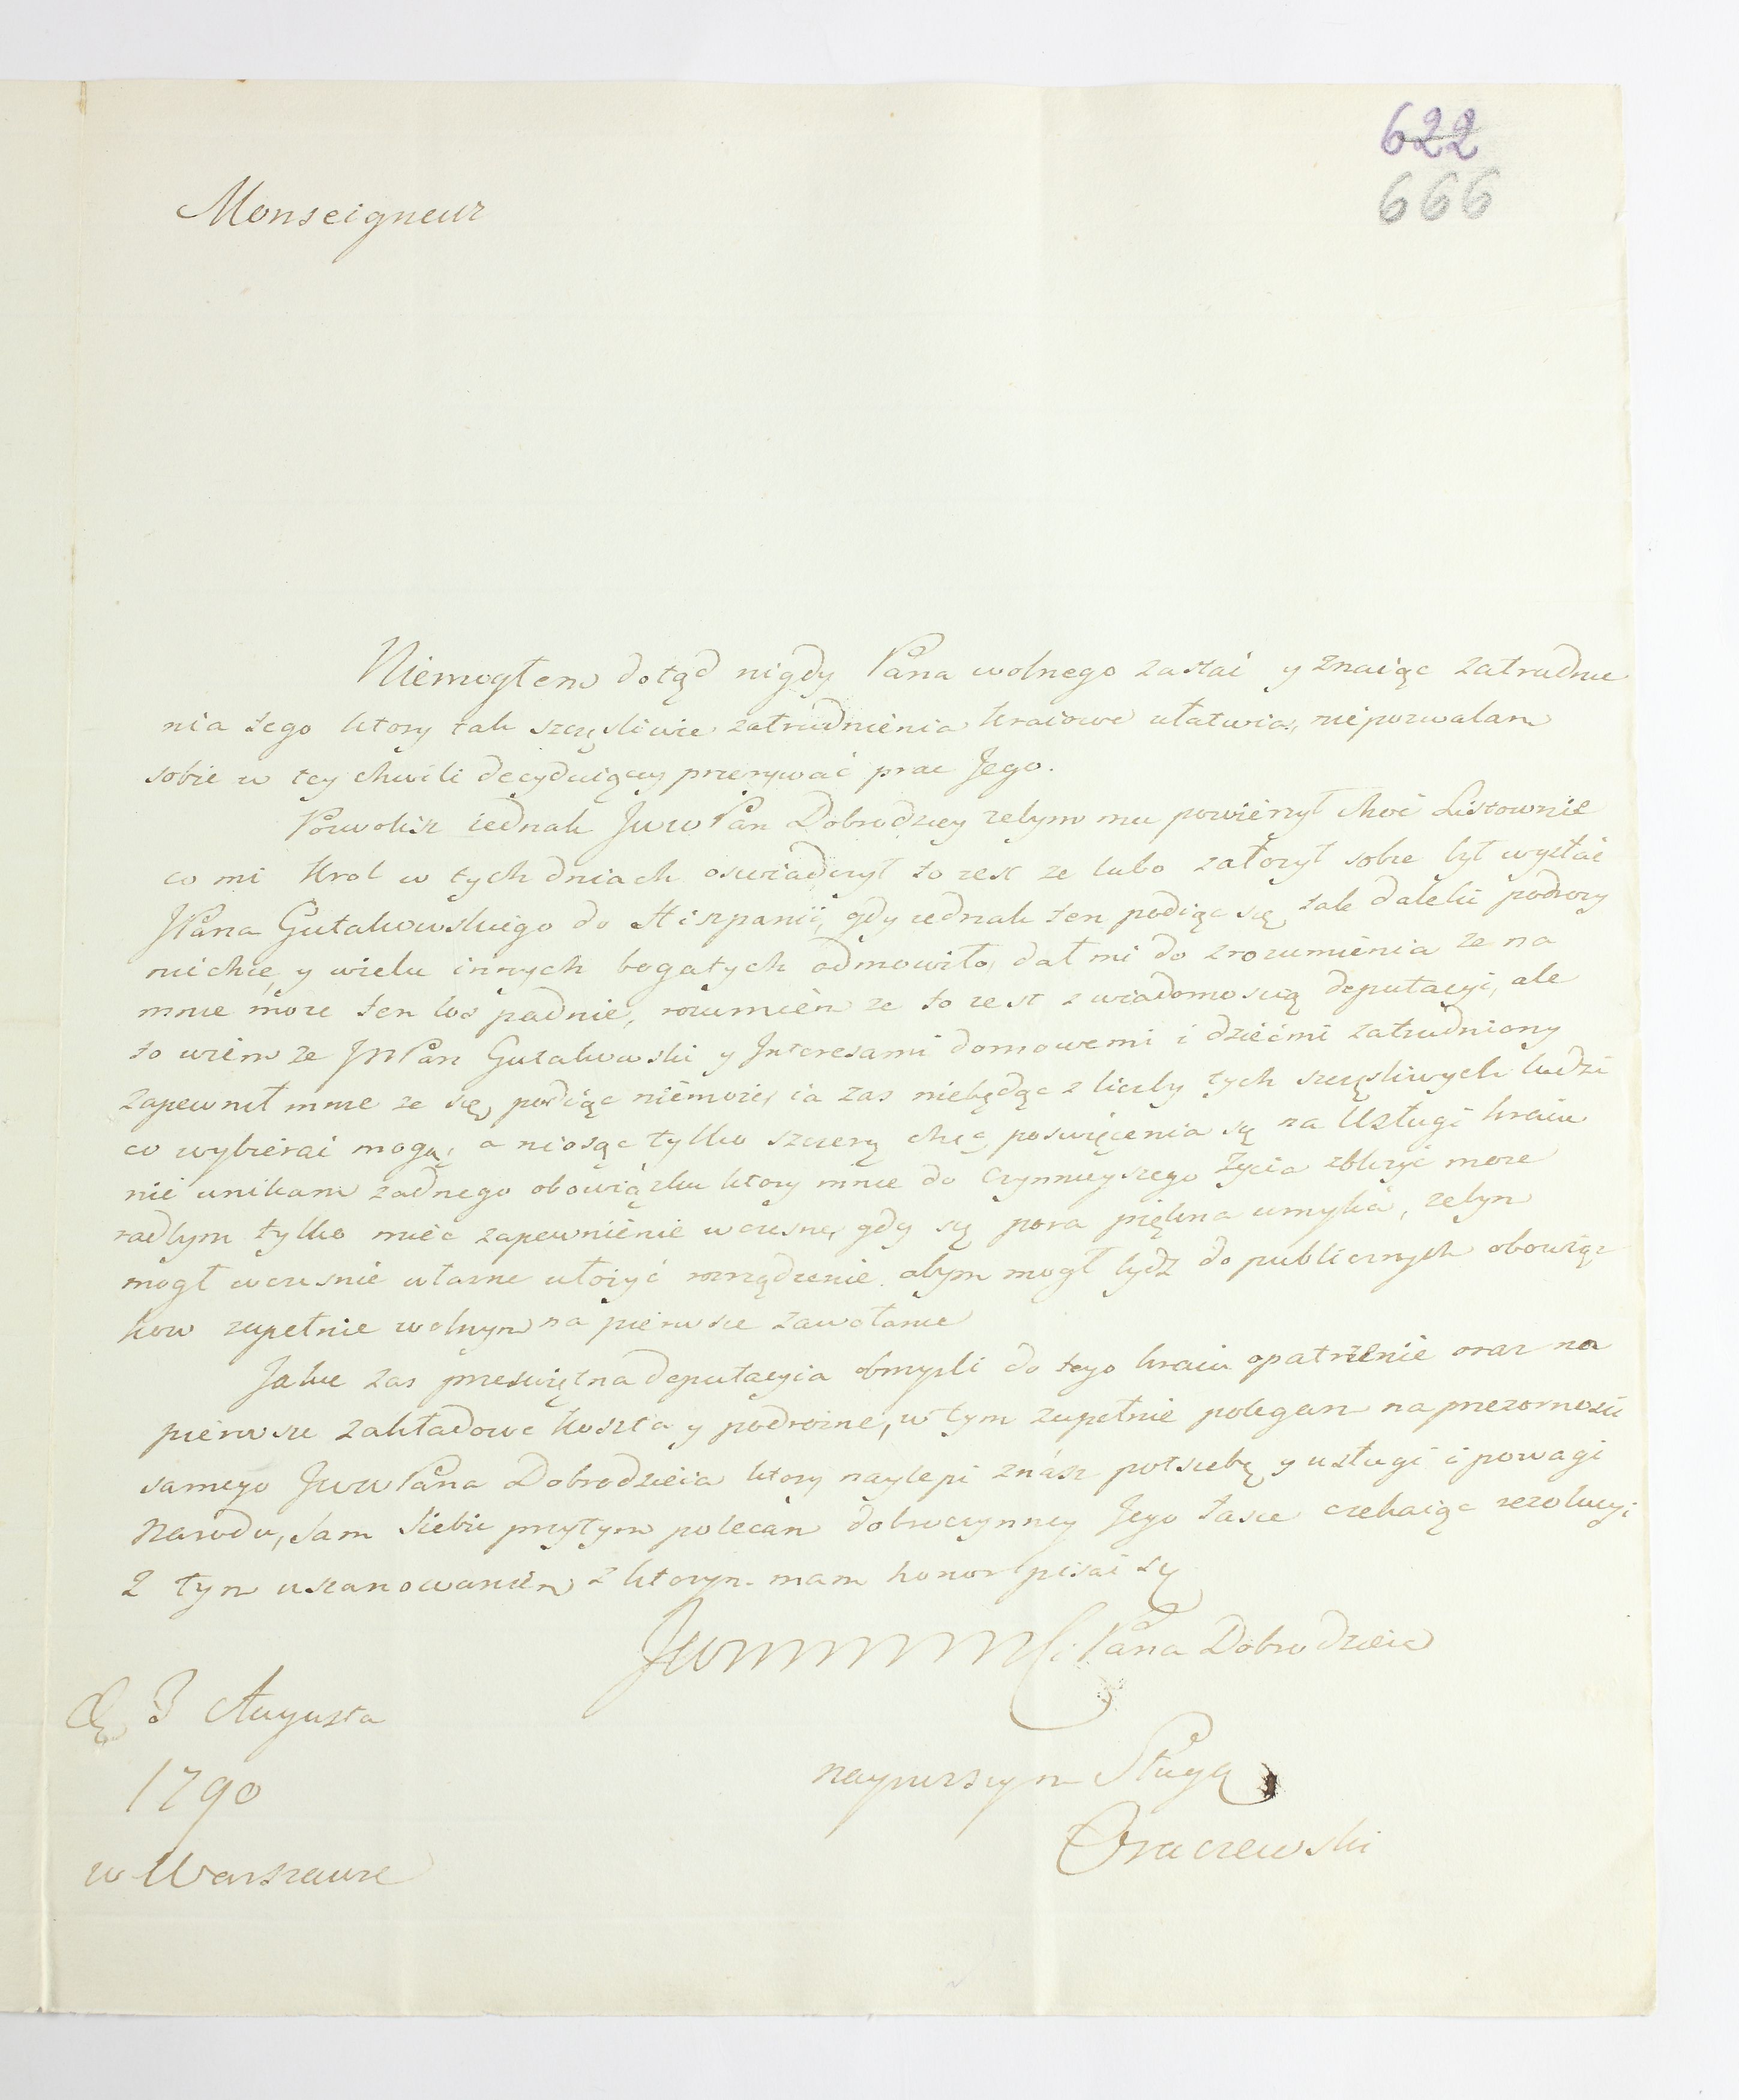 622
666
Monseigneur
Niemogłem dotąd nigdy Pana wolnego zastai y znaiąc zatrudnie
nia tego ktory tak szczęsliwie zatrudnienia kraiowe ułatwia, niepozwalam
sobie w tey chwili decyduiącey przerywać prac Jego.
Pozwolisz iednak JWW Pan Dobrodziey zebym mu powierzył choć Listownie
co mi Krol w tych dniach oswiadczył to iest ze lubo założył sobie był wysłać
JPana Gutakowskiego do Hiszpanii, gdy iednak ten podiąc się tak dalekii podrozy
niechce, y wielu innych bogatych odmowiło, dał mi do zrozumienia ze na
mnie może ten los padnie, rozumiem ze to iest z wiadomoscią deputacyi, ale
to wiem ze JWPan Gutakowski y Interesami domowemi i dziećmi zatrudniony
zapewnił mnie ze się podiąc niemoże, ia zas niebędąc z liczby tych szczęsliwych ludzi
co wybierai mogą, a niosąc tylko szczerą chęc poswięcenia się na Usługi kraiu
nie unikam zadnego obowiązku ktory mnie do czynnieyszego życia zbliżyć moze
radbym tylko mieć zapewnienie wczesne, gdy się pora piękna umyka, zebym
mogł wczesnie własne ułożyć rozrządzenie. abym mogł bydz do publicznych obowiąz
kow zupełnie wolnym na pierwsze zawołanie
Jakie zas przeswiętna deputacyia obmysli do tego kraiu opatrzenie oraz na
pierwsze zakładowe koszta y podrożne, w tym zupełnie polegam na przezornosci
samego JWW Pana Dobrodzieia ktory naylepi znász potrzebę y usługi i powagi
Narodu, sam siebie przytym polecam dobroczynney Jego łasce czekaiąc rezolucyi
z tym uszanowaniem z ktorym mam honor pisai się
Pana Dobrodzieia
D. 3 Augusta
1790
w Warszawie
nayniższym Sługą
Oraczewski